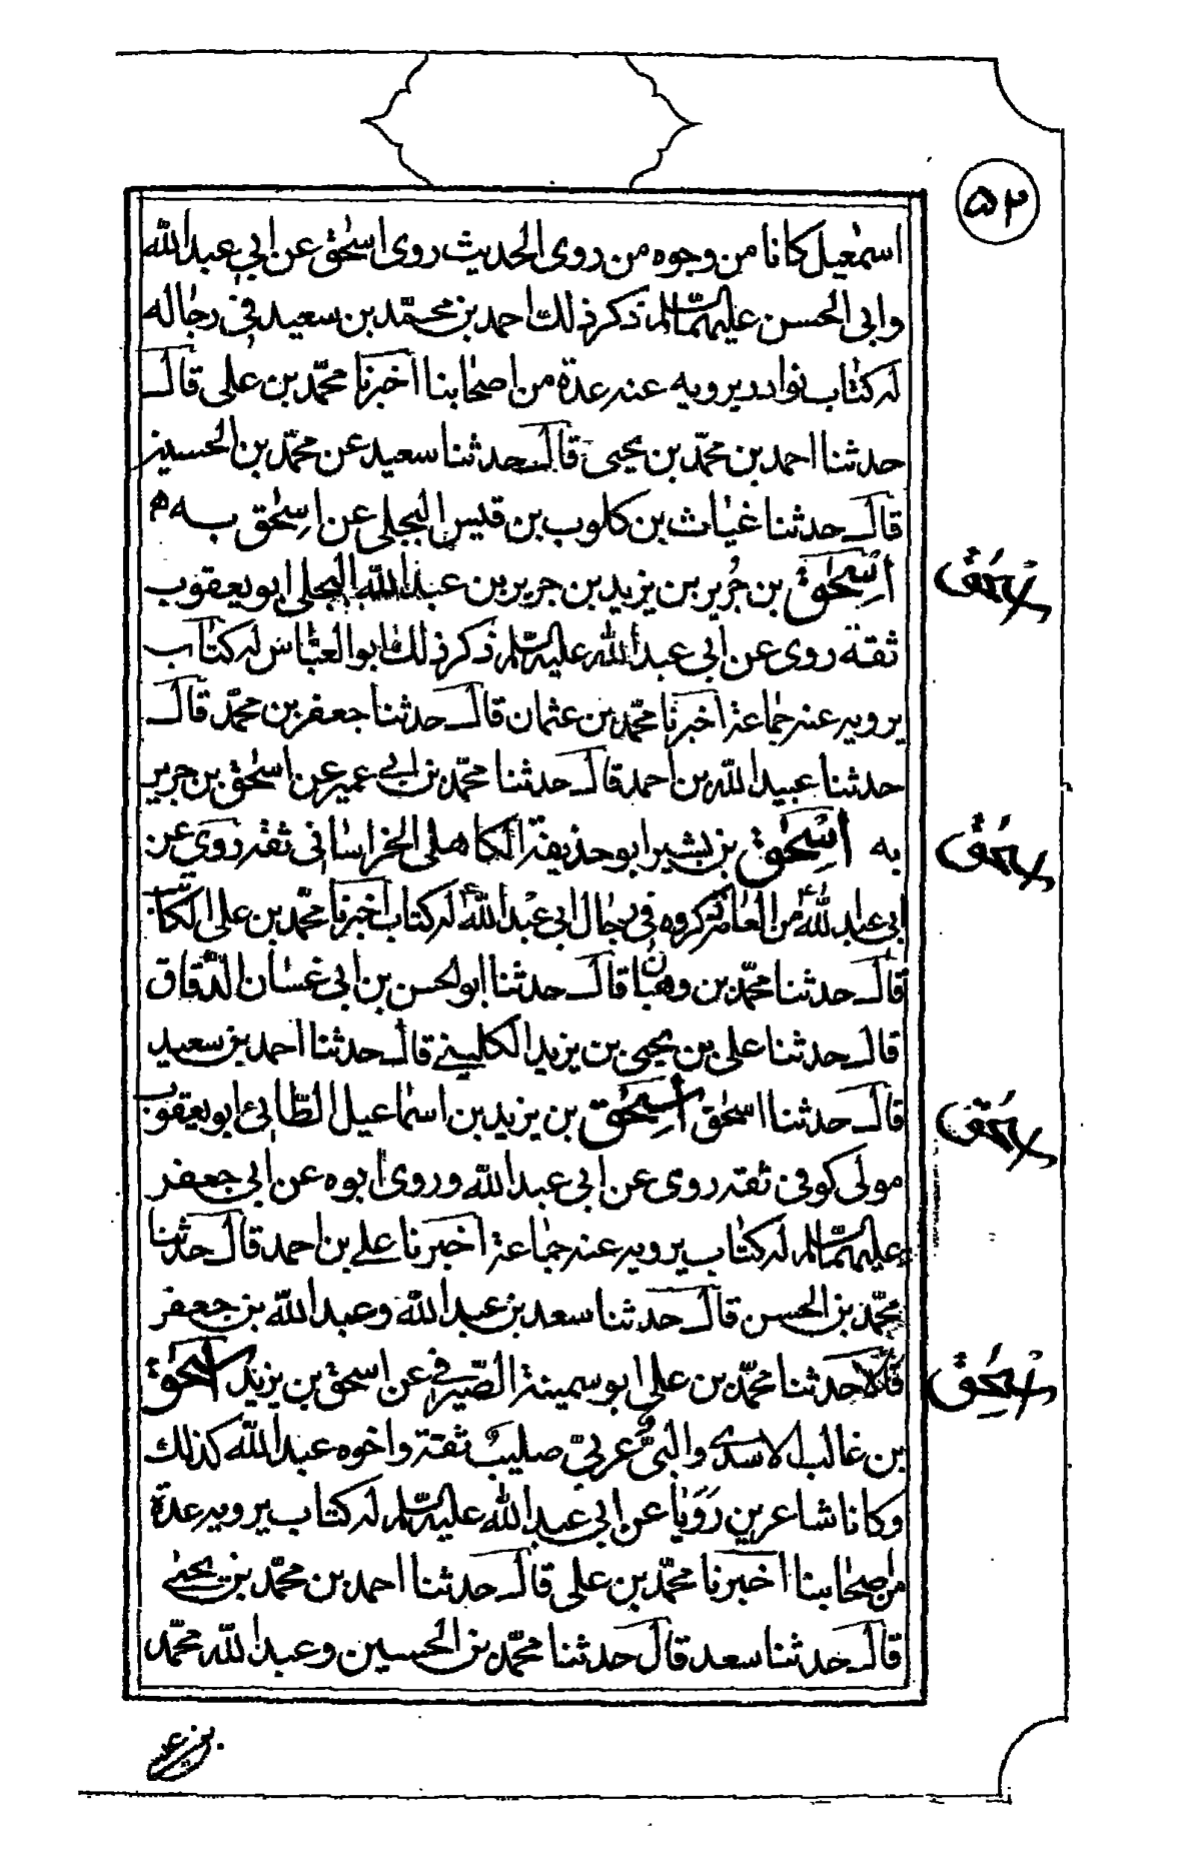 ٥٢
اسمعيل كانا من وجوه من روى الحديث روى اسحٰق عن ابي عبد الله
وابى الحسن عليهما السّلم ذكر ذلك احمد بن محمّد بن سعيد فى رجاله
له كتٰاب نوادر يرويه عنه عدة من اصحٰابنا اخبرنا محمّد بن على قال
حدثنا احمد بن محمّد بن يحيى قال حدثنا سعيد عن محمّد بن الحسين
قال حدثنا غيٰاث بن كلوب بن قيس البجلى عن اسِحٰق به
اسِحٰق بن جُرير بن يزيد بن جرير بن عبد الله البجلى ابو يعقوب
اسحٰق
ثقة روى عن ابى عبد الله عليه السّلم ذكر ذلك ابو العبّاس له كتٰاب
يرويه عنه جمٰاعة اخبرنا محمّد بن عثمان قال حدثنا جعفر بن محمّد قال
حدثنا عبيد الله بن احمد قال حدثنا محمّد بن ابى عمير عن اسحٰق بن جرير
به اسِحٰق بن بشير ابو حذيفة الكاهلى الخراسٰانى ثقة روى عن
اسحٰق
ابى عبد الله ع من العٰامة ذكروه فى رجٰال ابى عبد الله ع له كتاب اخبرنا محمّد بن على الكٰاتب
قال حدثنا محمّد بن وهبٰان قال حدثنا ابو الحسن بن ابى غسٰان الدّقاق
قال حدثنا على بن يحيى بن يزيد الكلينى قال حدثنا احمد بن سعيد
قال حدثنا اسحٰق اسِحٰق بن يزيد بن اسمٰاعيل الطّائى ابو يعقوب
اسحٰق
مولى كوفى ثقة روى عن ابى عبد الله وروى ابوه عن ابى جعفر
عليهما السّلم له كتٰاب يرويه عنه جمٰاعة اخبرنا على بن احمد قال حدثنا
محمّد بن الحسن قال حدثنا سعد بن عبد الله وعبد الله بن جعفر
قالا حدثنا محمّد بن على ابو سمينة الصّيرفى عن اسحق بن يزيد اسحٰق
اسحٰق
بن غالب الاسدى والبىّ عربىّ صليب ثقة واخوه عبد الله كذلك
وكانا شاعرين رَوَيٰا عن ابى عبد الله عليه السّلم له كتاب يرويه عدة
من اصحٰابنا اخبرنا محمّد بن على قال حدثنا احمد بن محمّد بن يحيى
قال حدثنا سعد قال حدثنا محمّد بن الحسين وعبد الله محمّد